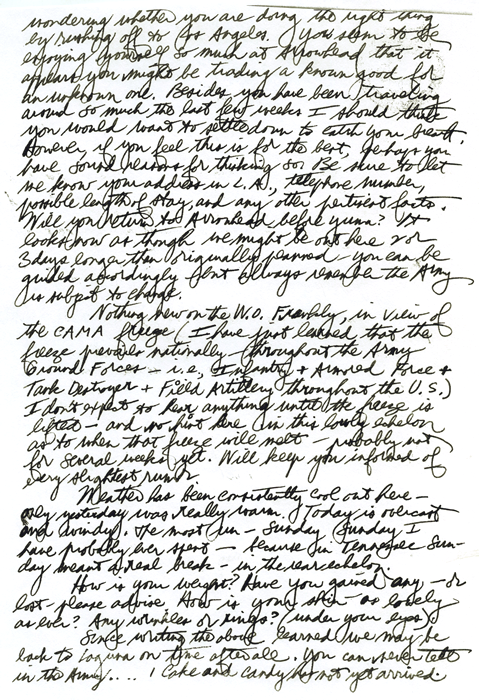 wondering whether you are doing the right thing
by rushing off to Los Angeles. You seem to be
enjoying yourself so much at Arrowhead that it
appears you might be trading a known good for
an unknown one. Besides you have been traveling
around so much the last few weeks I should think
you would want to settle down to catch your breath.
However if you feel this is for the best, perhaps you
have sound reasons for thinking so. Be sure to let
me know your address in L.A., telephone number,
possible length of stay, and any other pertinent facts.
Will you return to Arrowhead before Yuma? It
looks now as though we might be out here 2 or
3 days longer than originally planned – you can be
guided accordingly but always remember the Army
is subject to change.
Nothing new on the W.O. Frankly, in view of
the CAMA freeze (I have just learned that the
freeze prevails nationally – throughout the Army
Ground Forces – i.e., Infantry + Armored Force +
Tank Destroyer + Field Artillery throughout the U.S.)
I don't expect to hear anything until the freeze is
lifted – and no hint here in this lowly echelon
as to when that freeze will melt – probably not
for several weeks yet. Will keep you informed of
every slightest rumor
Weather has been consistently cool out here –
only yesterday was really warm. Today is overcast
and windy. The most un-Sunday Sunday I
have probably ever spent – because in Tennessee Sun-
day meant a real break – in the rear echelon.
How is your weight? Have you gained any, – or
lost – please advise. How is your skin – as lovely
as ever? Any wrinkles or rings? (under your eyes)
Since writing the above, learned we may be
back to Laguna on time after all. You can never tell
in the Army.... Cake and candy has not yet arrived.